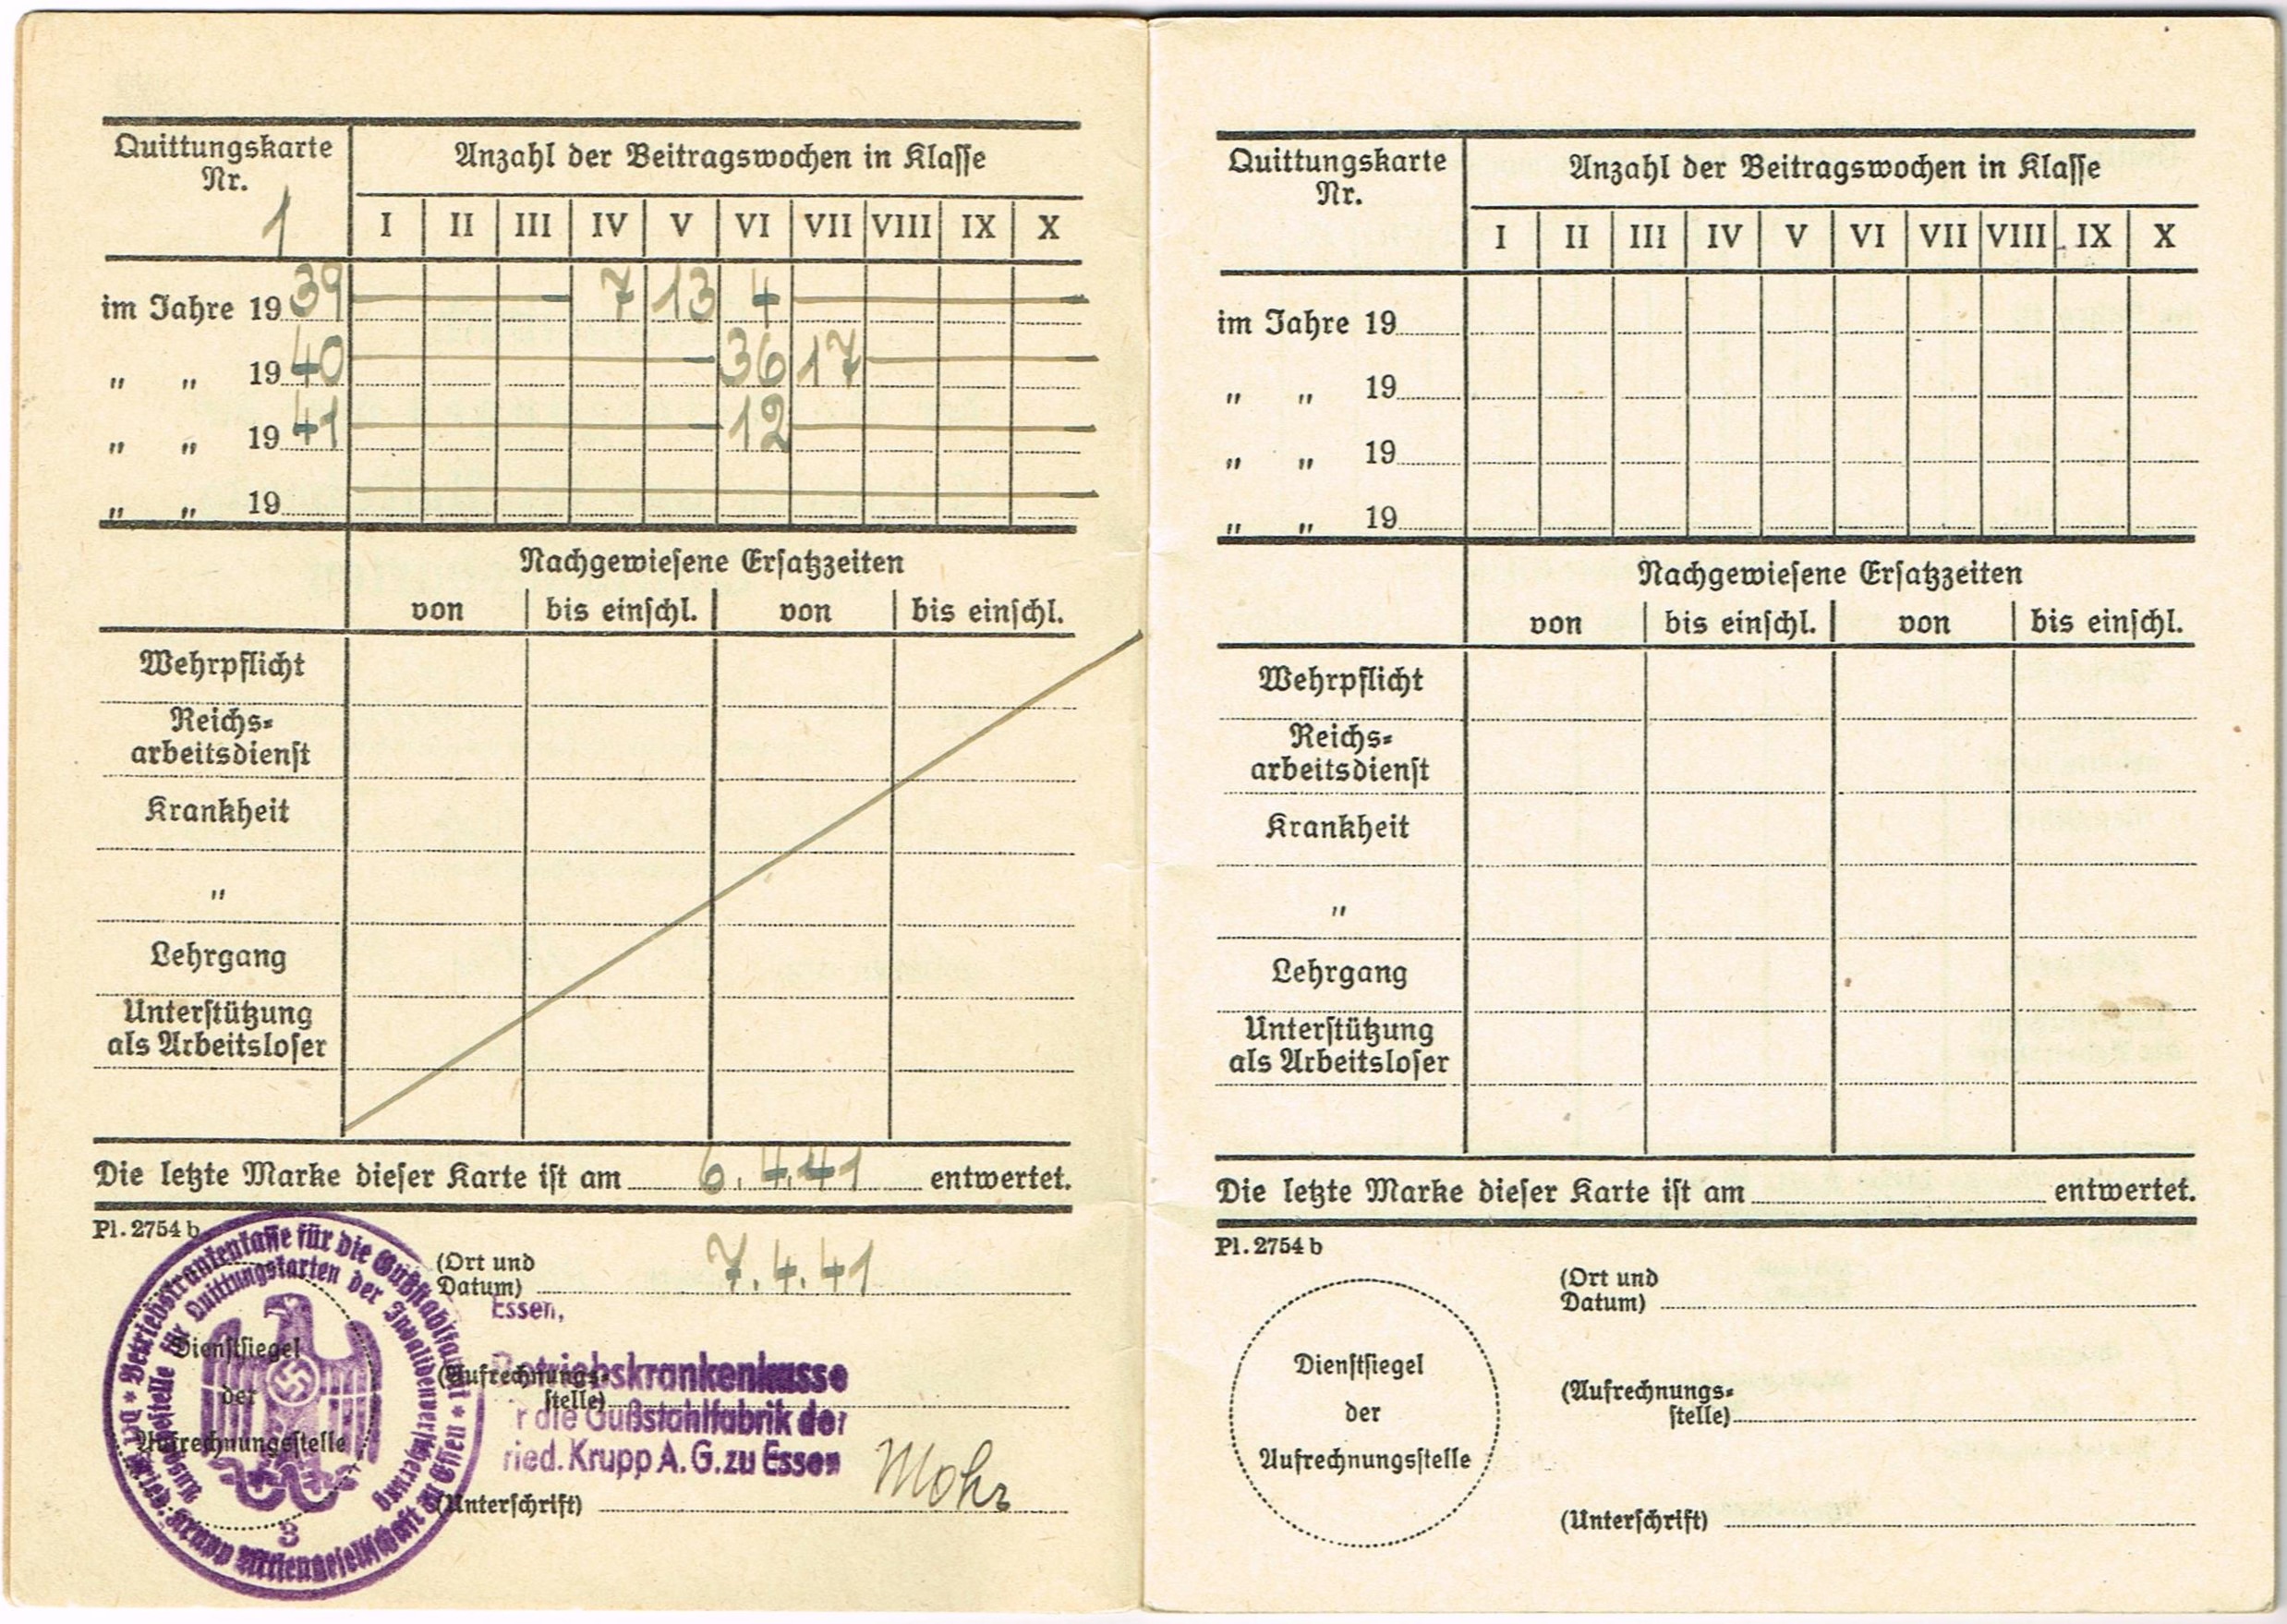 Quittungskarte
Nr.
1
Anzahl der Beitragswochen in Klasse
I II III IV V VI VII VIII IX X
im Jahre 1939 7 13 4
" " 1940 36 17
" " 1941 12
" " 19
Nachgewiesene Ersatzzeiten
von bis einschl. von bis einschl.
Wehrpflicht
Reichs-
arbeitsdienst
Krankheit
"
Lehrgang
Unterstützung
als Arbeitsloser
Die letzte Marke dieser Karte ist am 6.4.41 entwertet.
Pl. 2754 b
(Ort und
Datum) 7.4.41
Essen,
Dienstsiegel
der
Aufrechnungsstelle
Betriebskrankenkasse für die Gußstahlfabrik * der Fried. Krupp Aktiengesellschaft in Essen *
Ausgabestelle für Quittungskarten der Invalidenversicherung
3
(Aufrechnungs-
stelle)
Betriebskrankenkasse
r die Gußstahlfabrik der
ried. Krupp A. G. zu Essen
(Unterschrift) Mohr
Quittungskarte
Nr.
Anzahl der Beitragswochen in Klasse
I II III IV V VI VII VIII IX X
im Jahre 19
" " 19
" " 19
" " 19
Nachgewiesene Ersatzzeiten
von bis einschl. von bis einschl.
Wehrpflicht
Reichs-
arbeitsdienst
Krankheit
"
Lehrgang
Unterstützung
als Arbeitsloser
Die letzte Marke dieser Karte ist am entwertet.
Pl. 2754 b
(Ort und
Datum)
Dienstsiegel
der
Aufrechnungsstelle
(Aufrechnungs-
stelle)
(Unterschrift)